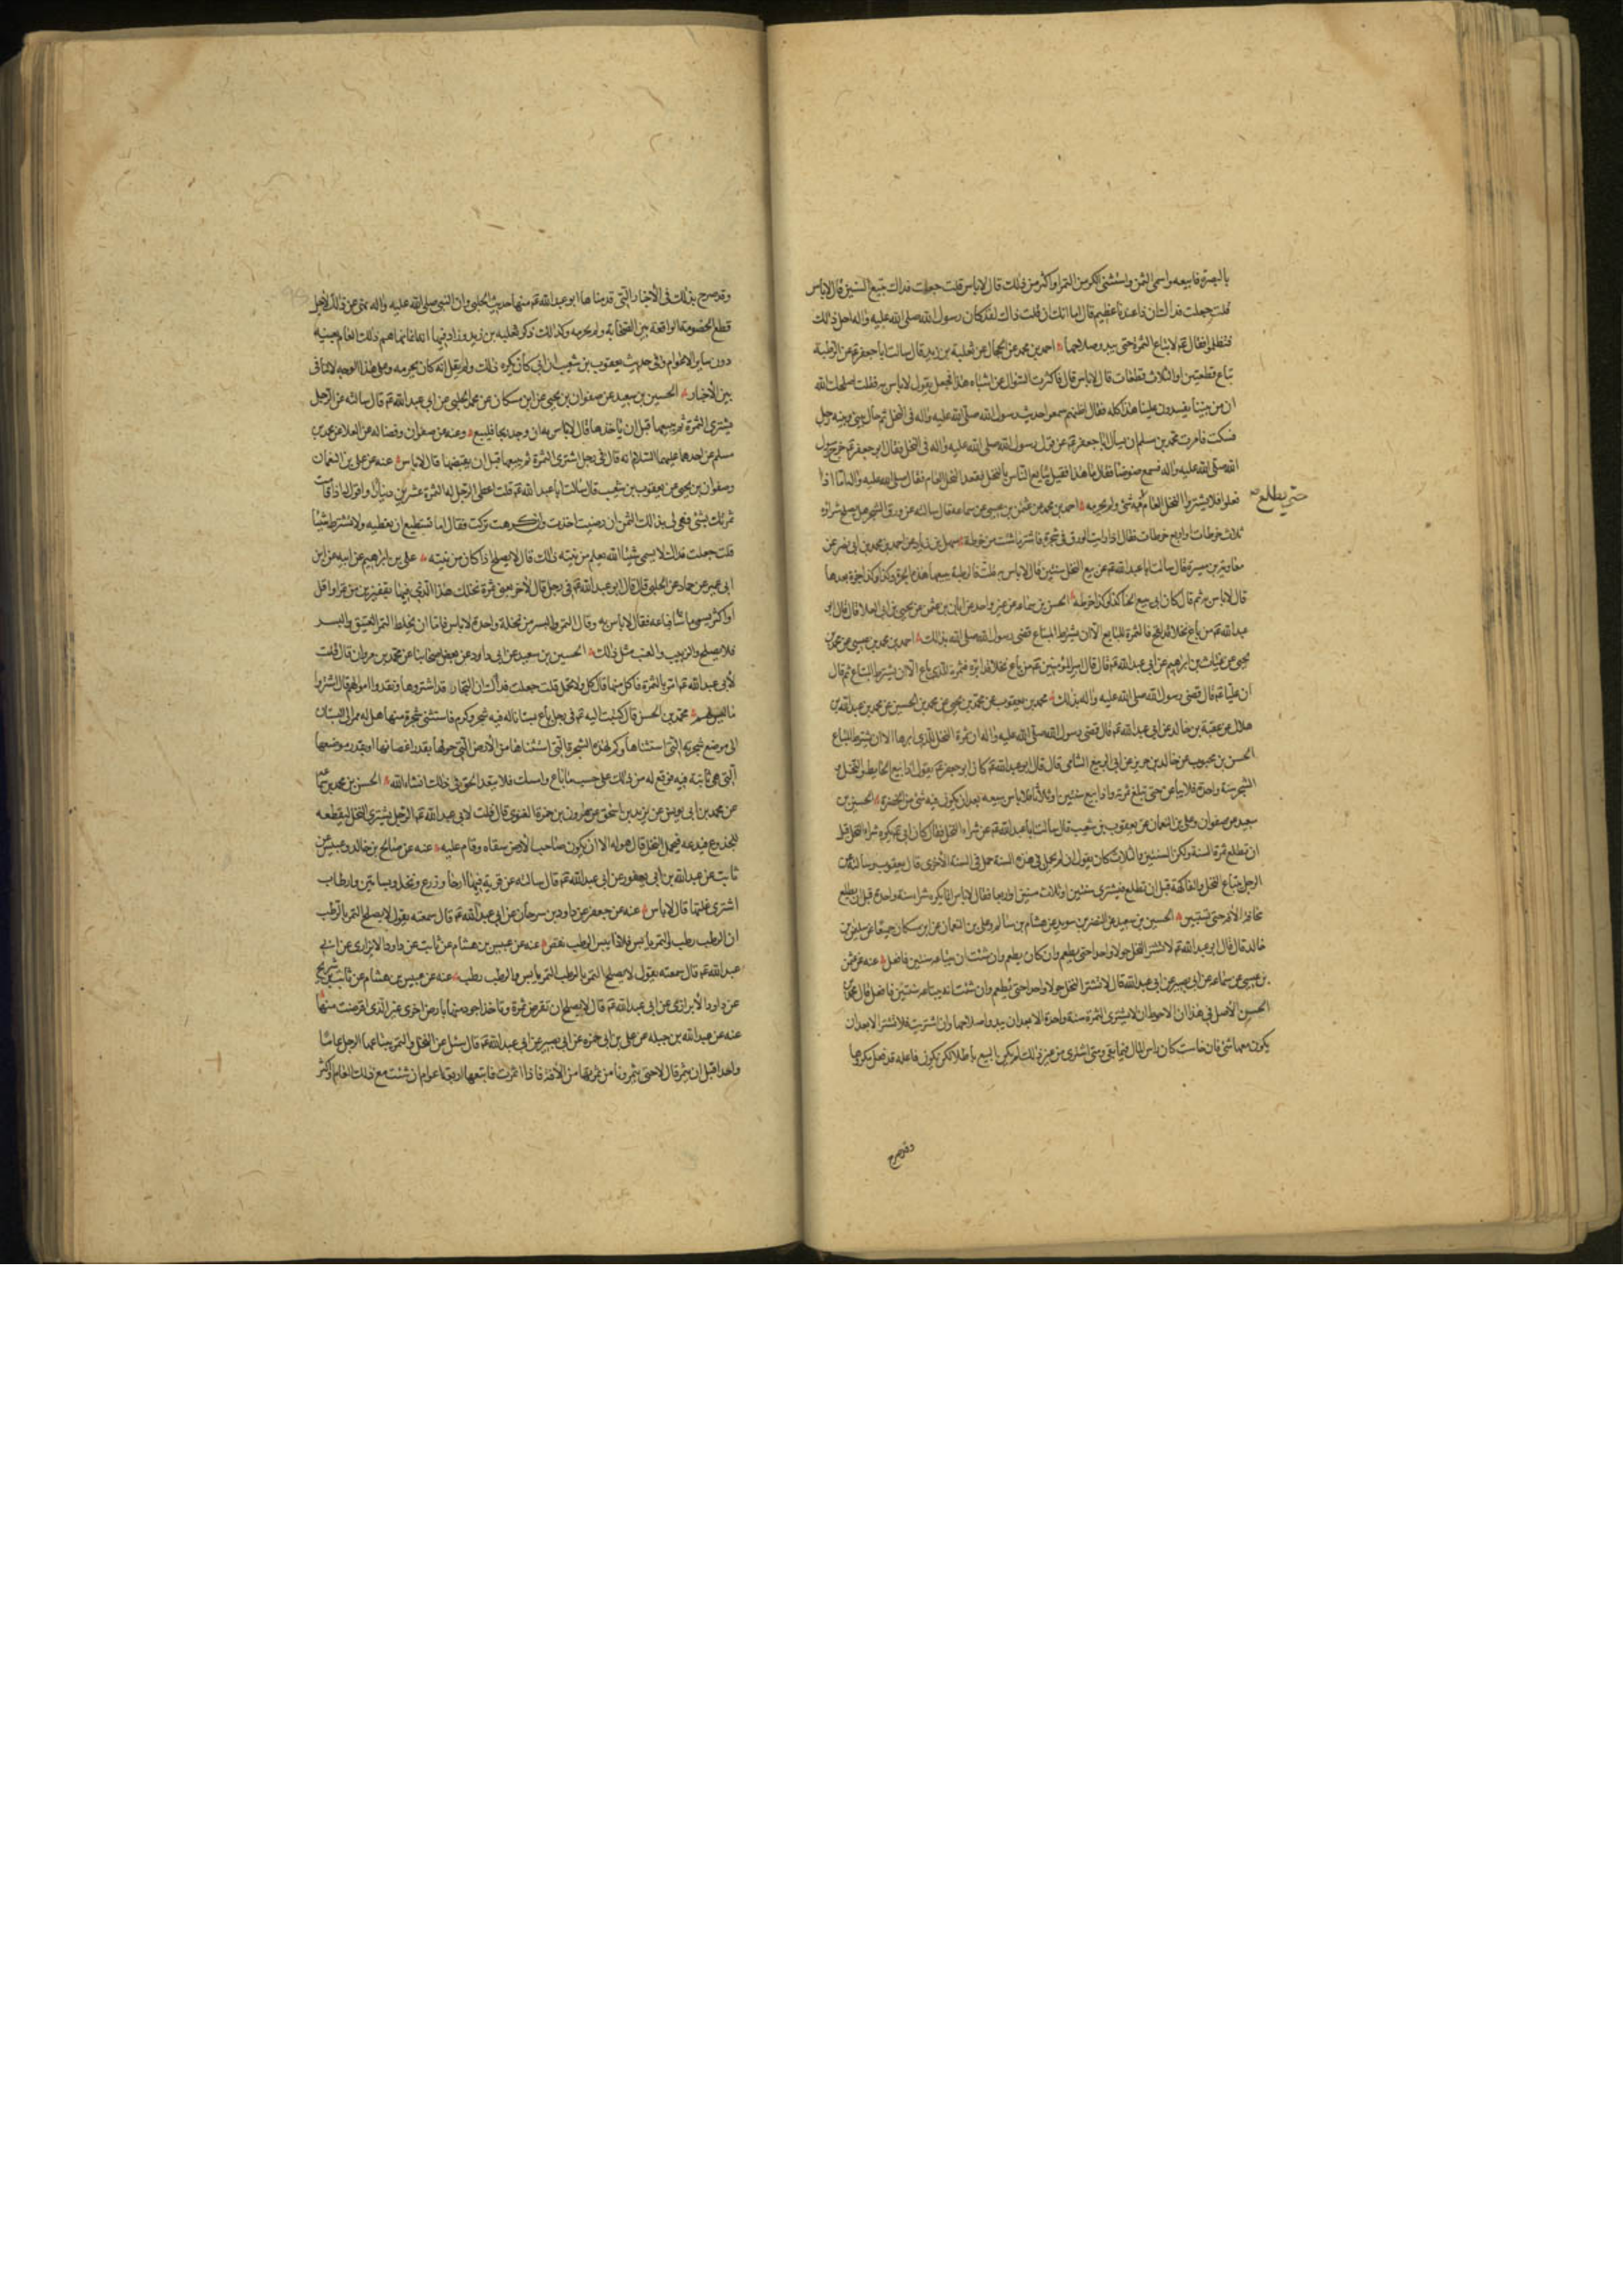 بالبصرة فابيعه واسمى الثمن واستثنى الكر من التمر او اكثر من ذلك قال لاباس قلت جعلت فداك نبيع السنين قال لاباس
قلت جعلت فداك ان ذا عندنا عظيم قال اما انك ان قلت ذاك لقد كان رسول الله صلى الله عليه واله احل ذلك
فتظلموا فقال ع لاتباع الثمرة حتى يبدو صلاحها احمد بن محمد عن الحجال عن ثعلبة بن زيد قال سالت ابا جعفر ع عن الرطبة
تباع قطعتين او الثلاث قطعات قال لاباس قال فاكثرت السؤال عن اشباه هذا فجعل يقول لاباس به فقلت اصلحك الله
ان من بيننا يفسدون علينا هذا كله فقال اظنهم سمعوا حديث رسول الله صلى الله عليه واله فى النخل ثم حال بينى وبينه رجل
فسكت فامرت محمد بن مسلم ان يسال ابا جعفر ع عن قول رسول الله صلى الله عليه واله فى النخل فقال ابو جعفر ع خرج رسول
الله صلى الله عليه واله فسمع ضوضاء فقال ما هذا فقيل تبايع الناس بالنخل فقعد النخل العام فقال صلى الله عليه واله اما اذا
فعلوا فلا يشتروا النخل العام فيه شئ ولم يحرمه احمد بن محمد عن عثمن بن عيسى عن سماعة قال سالته عن ورق الشجر هل يصلح شراؤه
حتى يطلع صح
ثلاث خرطات او اربع خرطات فقال اذا رايت الورق فى شجرة فاشتر ماشئت من خرطة سهل بن زياد عن احمد بن محمد بن ابى نصر عن
معاوية بن ميسرة قال سالت ابا عبد الله ع عن بيع النخل سنتين قال لاباس به قلت فالرطبة يبيعها هذه الجزة وكذا وكذا جزة بعدها
قال لاباس به ثم قال كان ابى يبيع الحنا كذا وكذا خرطة الحسن بن سماعه عن غير واحد عن ابان بن عثمن عن يحيى بن ابى العلا قال قال ابو
عبد الله ع من باع نخلا قد لقح فالثمرة للبايع الا ان يشترط المبتاع قضى رسول الله صلى الله بذلك احمد بن محمد بن عيسى عن محمد بن
يحيى عن غياث بن ابراهيم عن ابى عبد الله ع قال قال امير المؤمنين ع من باع نخلا قد ابره فثمرته للذى باع الا ان يشترط المبتاع ثم قال
ان عليا ع قال قضى رسول الله صلى الله عليه واله بذلك محمد بن يعقوب عن محمد بن يحيى عن محمد بن الحسين عن محمد بن عبد الله بن
هلال عن عقبة بن خالد عن ابى عبد الله ع قال قضى رسول الله صلى الله عليه واله ان ثمرة النخل للذى ابرها الا ان يشترط المبتاع
الحسن بن محبوب عن خالد بن جرير عن ابى الربيع الشامى قال قال ابو عبد الله ع كان ابو جعفر ع يقول اذا بيع الحايط فيه النخل و
الشجر سنة واحدة فلا يباعن حتى تبلغ ثمرته واذا بيع سنتين او ثلاثا فلا باس ببيعه بعد ان يكون فيه شئ من الخضرة الحسين بن
سعيد عن صفوان وعلى بن النعمان عن يعقوب بن شعيب قال سالت ابا عبد الله ع عن شراء النخل فقال كان ابى ع يكره شراء النخل قبل
ان تطلع ثمرة السنة ولكن السنتين والثلاث كان يقول ان لم يحمل فى هذه السنة حمل فى السنة الاخرى قال يعقوب وسالته عن
الرجل يبتاع النخل والفاكهة قبل ان تطلع فيشترى سنتين او ثلاث سنين او اربعا فقال لاباس انما يكره شرا سنة واحدة قبل ان يطلع
مخافة الافة حتى تستبين الحسين بن سعيد عن النضر بن سويد عن هشام بن سالم وعلى بن النعمان عن ابن مسكان جميعا عن سليمن بن
خالد قال قال ابو عبد الله ع لا تشتر النخل حولا واحدا حتى يطعم وان كان يطعم وان شئت ان تبتاعه سنتين فافعل عنه عن عثمن
بن عيسى عن سماعه عن ابى بصير عن ابى عبد الله قال لا تشتر النخل حولا واحدا حتى يطعم وان شئت ان تبتاعه سنتين فافعل قال محمد بن
الحسن الاصل فى هذا ان الاحوط ان لا يشترى الثمرة سنة واحدة الا بعد ان يبدو صلاحها وان اشتريت فلا تشتر الا بعد ان
يكون معها شئ فان خاست كان راس المال فيما بقى ومتى اشترى من غير ذلك لم يكن البيع باطلا لكن يكون فاعله قد فعل مكروها
وقد صرح
وقد صرح بذلك فى الاخبار التى قدمناها ابو عبد الله ع منها حديث الحلبى وان النبى صلى الله عليه واله نهى عن ذلك لاجل
قطع الخصومة الواقعة بين الصحابة ولم يحرمه وكذلك ذكر ثعلبه بن زيد وزاد فيها انه انما نهاهم ذلك العام بعينه
دون ساير الاعوام وفى حديث يعقوب بن شعيب ان ابى كان يكره ذلك ولم يقل انه كان يحرمه وعلى هذا الوجه لا تنافى
بين الاخبار الحسين بن سعيد عن صفوان بن يحيى عن ابن مسكان عن محمد الحلبى عن ابى عبد الله ع قال سالته عن الرجل
يشترى الثمرة ثم يبيعها قبل ان ياخذها قال لاباس به ان وجد بها فليبع وعنه عن صفوان وفضاله عن العلا عن محمد بن
مسلم عن احدهما عليهما السلام انه قال فى رجل اشترى الثمرة ثم يبيعها قبل ان يقبضها قال لاباس عنه عن على بن النعمان
وصفوان بن يحيى عن يعقوب بن شعيب قال سالت ابا عبد الله ع قلت اعطى الرجل له الثمرة عشرين دينارا واقول له اذا قامت
ثمرتك بشئ فهى لى بذلك الثمن ان رضيت اخذت وان كرهت تركت فقال اما تستطيع ان تعطيه ولا تشترط شيئا
قلت جعلت فداك لا يسمى شيئا الله يعلم من نيته ذلك قال لا يصلح اذا كان من نيته على بن ابراهيم عن ابيه عن ابن
ابى عمير عن حماد عن الحلبى قال قال ابو عبد الله ع فى رجل قال لاخر بعنى ثمرة نخلك هذا الذى فيها بقفيزين من تمر او اقل
او اكثر يسمى ما شاء فباعه فقال لاباس به وقال التمر والبسر من نخلة واحدة لاباس فاما ان يخلط التمر العتيق والبسر
فلا يصلح والزبيب والعنب مثل ذلك الحسين بن سعيد عن ابى داود عن بعض اصحابنا عن محمد بن مروان قال قلت
لابى عبد الله ع امر بالثمرة فاكل منها قال كل ولا تحمل قلت جعلت فداك ان التجار قد اشتروها ونقدوا اموالهم قال اشتروا
ما ليس لهم محمد بن الحسن قال كتبت اليه ع فى رجل باع بستانا له فيه شجر وكرم فاستثنى شجرة منها هل له ممر الى البستان
الى موضع شجرته التى استثناها وكم لهذه الشجرة التى استثناها من الارض التى حولها بقدر اغصانها او بقدر موضعها
التى هى ثابتة فيه فوقع له من ذلك على حسب ما باع وامسك فلا يتعد الحق فى ذلك انشاء الله الحسن بن محمد بن سماعه
عن محمد بن ابى يونس عن يزيد بن اسحق عن هارون بن حمزة الغنوى قال قلت لابى عبد الله ع الرجل يشترى النخل ليقطعه
للجذوع فيدعه فيحمل النخل قال هو له الا ان يكون صاحب الارض سقاه وقام عليه عنه عن صالح بن خالد وعبيس عن
ثابت عن عبد الله بن ابى يعفور عن ابى عبد الله ع قال سالته عن قرية فيها ارحا وزرع ونخل وبساتين وارطاب
اشترى غلتها قال لاباس عنه عن جعفر عن داود بن سرحان عن ابى عبد الله ع قال سمعته يقول لا يصلح التمر بالرطب
ان الرطب رطب والتمر يابس فلاذا يبس الرطب نقص عنه عن عبيس بن هشام عن ثابت عن داود الابزارى عن ابى
عبد الله ع قال سمعته يقول لا يصلح التمر بالرطب التمر يابس والرطب رطب عنه عن عبيس بن هشام عن ثابت بن شريح
عن داود الابزارى عن ابى عبد الله ع قال لا يصلح ان تقرض ثمرة وتاخذ اجود منها بارض اخرى غير الذى اقرضت منها
عنه عن عبد الله بن جبله عن على بن ابى حمزه عن ابى بصير عن ابى عبد الله ع قال سئل عن النخل والتمر يبتاعها الرجل عاما
واحدا قبل ان يثمر قال لا حتى يثمر وتامن ثمرتها من الافة فاذا اثمرت فابتعها اربعة اعوام ان شئت مع ذلك العام او اكثر